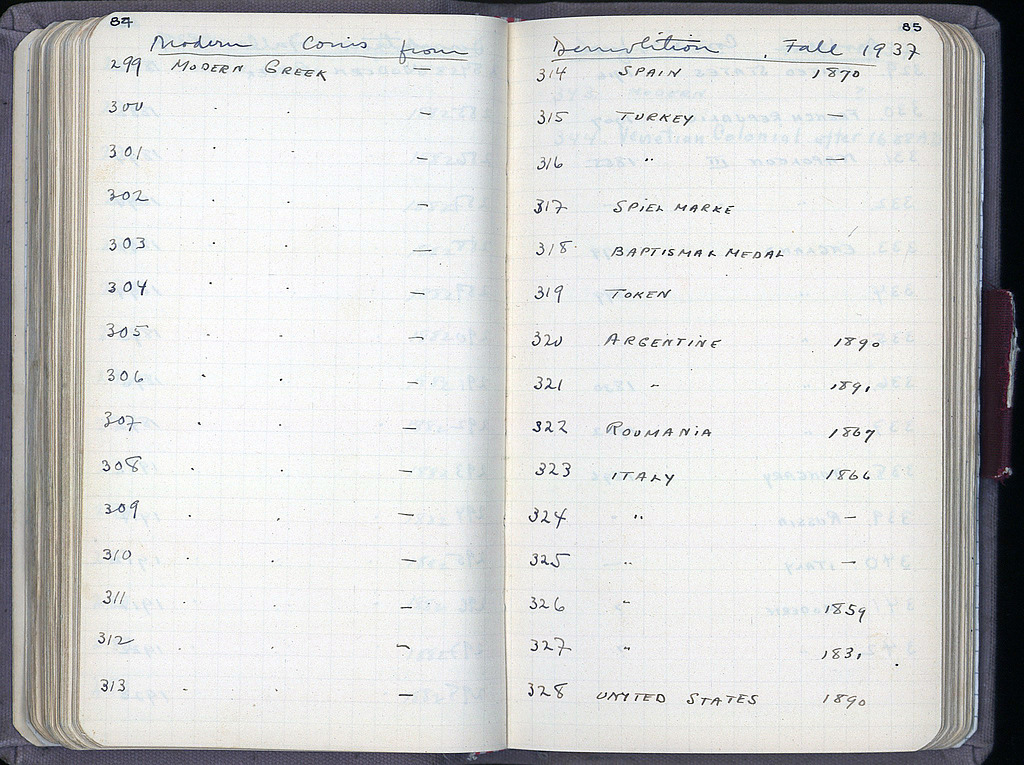 84
Modern Coins from
299 MODERN GREEK —
300 . . —
301 . . —
302 . . —
303 . . —
304 . . —
305 . . —
306 . . —
307 . . —
308 . . —
309 . . —
310 . . —
311 . . —
312 . . —
313 . . —
85
Demolition , Fall 1937
314 SPAIN 1870
315 TURKEY —
316 " —
317 SPIEL MARKE
318 BAPTISMAL MEDAL
319 TOKEN
320 ARGENTINE 1890
321 " 1891
322 ROUMANIA 1867
323 ITALY 1866
324 " —
325 " —
326 " 1859
327 " 1831
328 UNITED STATES 1890